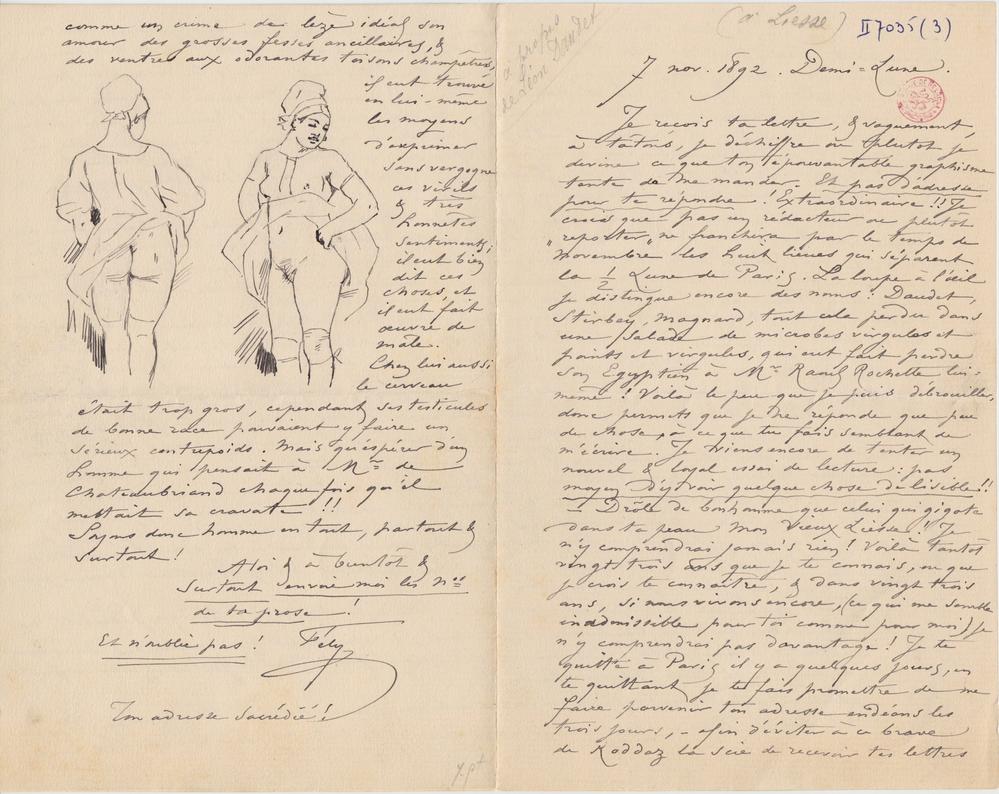 (à Liesse)
II 7035 (3)
à propos
de Léon Daudet
7 nov. 1892. Demi-Lune.
Je reçois ta lettre, & vaguement,
à tâtons, je déchiffre ou plutôt je
devine ce que ton épouvantable graphisme
tente de me mander. Et pas d'adresse
pour te répondre ! Extraordinaire !! Je
crois que pas un rédacteur ou plutôt
"reporter" ne franchira par le temps de
novembre les huit lieues qui séparent
la ½ Lune de Paris. La loupe à l'œil
je distingue encore des noms : Daudet,
Stirbey, Magnard, tout cela perdu dans
une salade de microbes virgules et
points et virgules, qui eut fait perdre
son Egyptien à Mr Raoul Rochette lui-
même ! Voilà le peu que je puis débrouiller,
donc permets que je ne réponde que peu
de chose à ce que tu fais semblant de
m'écrire. Je viens encore de tenter un
nouvel & loyal essai de lecture : pas
moyen d'y voir quelque chose de lisible !!
– Drôle de bonhomme que celui qui gigote
dans ta peau mon Vieux Liesse ! Je
n'y comprendrai jamais rien ! Voilà tantôt
vingt trois ans que je te connais, ou que
je crois te connaître, & dans vingt trois
ans, si nous vivons encore, (ce qui me semble
inadmissible pour toi comme pour moi) je
n'y comprendrai pas davantage ! Je te
quitte à Paris il y a quelques jours, en
te quittant je te fais promettre de me
faire parvenir ton adresse endéans les
trois jours, – afin d'éviter à ce brave
de Roddaz la scie de recevoir tes lettres
comme un crime de lèze idéal son
amour des grosses fesses ancillaires, &
des ventres aux odorantes toisons champêtres,
il eut trouvé
en lui-même
les moyens
d'exprimer
sans vergogne
ces virils
& très
honnêtes
sentiments ;
il eut bien
dit ces
choses, et
il eut fait
œuvre de
mâle.
Chez lui aussi
le cerveau
était trop gros, cependant ses testicules
de bonne race pouvaient y faire un
sérieux contrepoids. Mais qu'espérer d'un
homme qui pensait à Mr de
Chateaubriand chaque fois qu'il
mettait sa cravate !!!
Soyons donc homme en tout, partout &
surtout !
A toi & à bientôt &
surtout envoie moi les Nos
de ta prose !
Et n'oublie pas !
Fély
Ton adresse sacrédié !